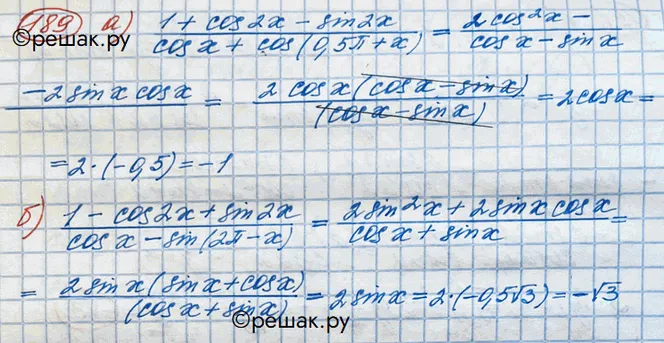 189 а) (1 + cos2x − sin2x)/(cosx + cos(0,5π + x)) = (2cos²x −)/(cosx − sinx)
©решак.ру
(− 2sinx cosx)/ = (2cosx(cosx − sinx))/((cosx − sinx)) = 2cosx =
= 2·(−0,5) = −1
б) (1 − cos2x + sin2x)/(cosx − sin(2π − x)) = (2sin²x + 2sinx cosx)/(cosx + sinx) =
= (2sinx(sinx + cosx))/((cosx + sinx)) = 2sinx = 2·(−0,5√3) = −√3
©решак.ру